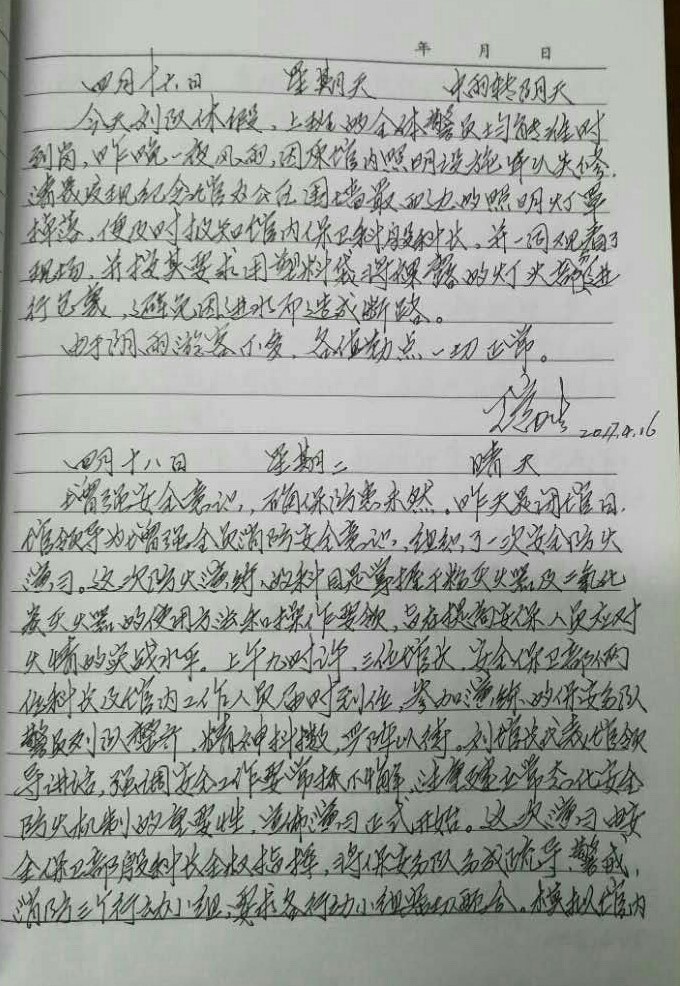 年 月 日
四月十六日 星期天 中雨转阴天
今天刘队休假，上班的全体警员均能准时
到岗，昨晚一夜风雨，因原馆内照明设施年久失修，
清晨发现纪念馆办公区围墙最北边的照明灯罩
掉落，便及时报知馆内保卫科段科长，并一同观看了
现场，并按其要求用塑料袋将裸露的灯头部位进
行包裹，避免因进水而造成断路。
由于阴雨游客不多，各值勤点一切正常。
2017.4.16
四月十八日 星期二 晴天
增强安全意识，确保防患未然。昨天是闭馆日，
馆领导为增强全员消防安全意识，组织了一次安全防火
演习。这次防火演练的科目是掌握干粉灭火器及二氧化
炭灭火器的使用方法和操作要领，旨在提高安保人员应对
火情的实战水平。上午九时许，三位馆长，安全保卫部俩
位科长及馆内工作人员届时到位，参加演练的保安部队
警员列队整齐，精神抖擞，严阵以待。刘馆长代表馆领
导讲话，强调安全工作要常抓不懈，注重建立常态化安全
防火机制的重要性，宣布演习正式开始。这次演习由安
全保卫部段科长全权指挥，将保安部队分成疏导，警戒，
消防三个行动小组，要求各行动小组密切配合。模拟馆内